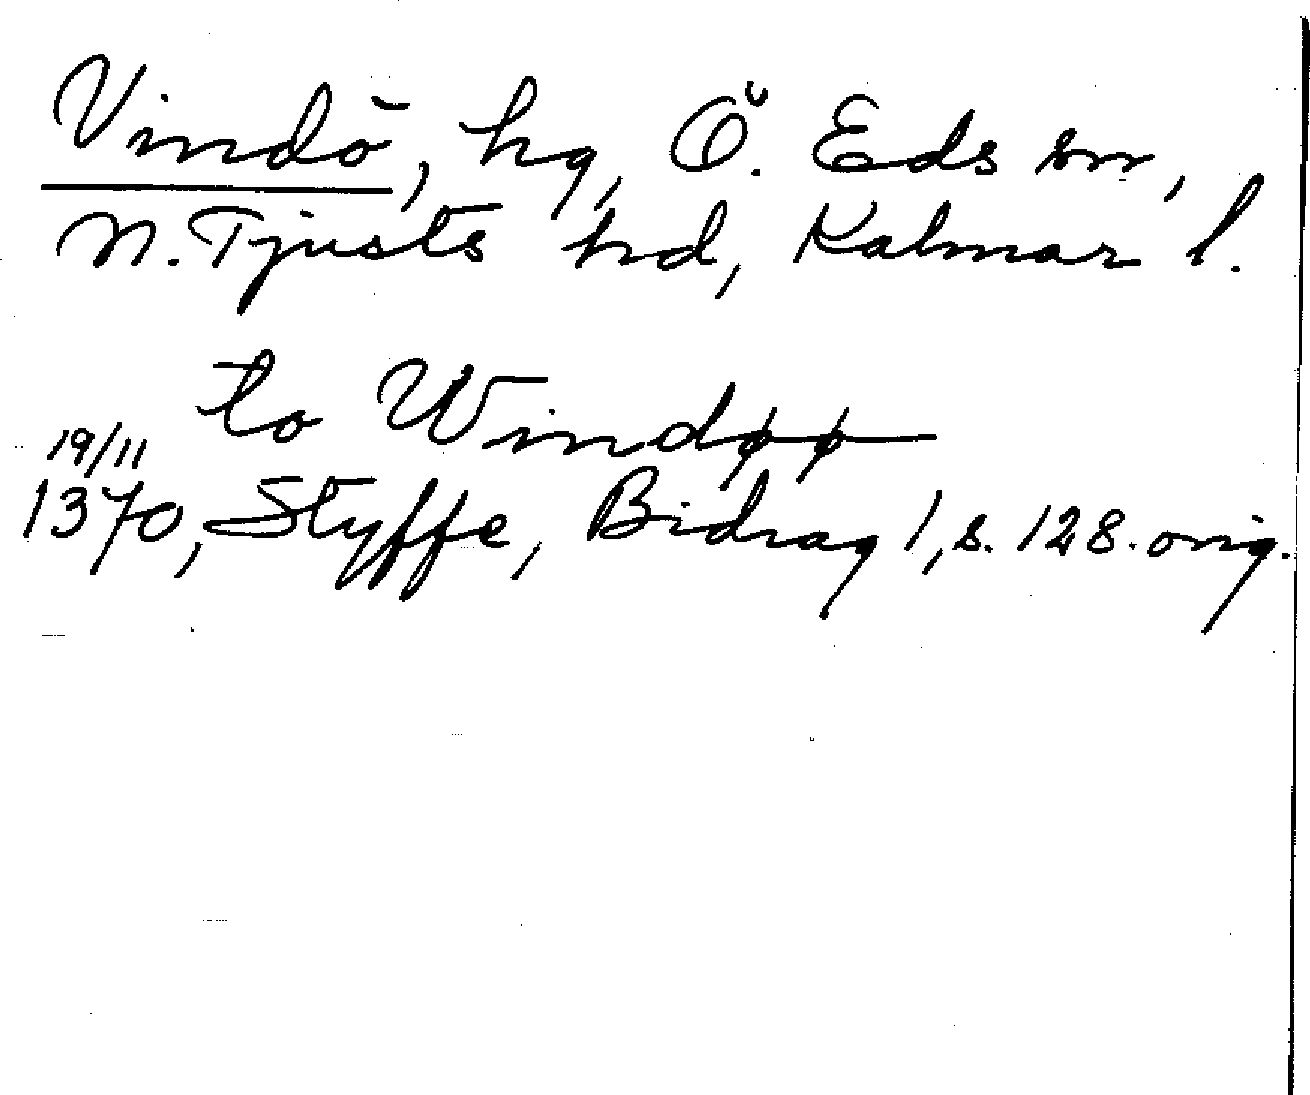 Vindö, hg, Ö. Eds sn,
N. Tjusts hd, Kalmar l.
to Windøø
19/11
1370, Styffe, Bidrag 1, s. 128. orig.